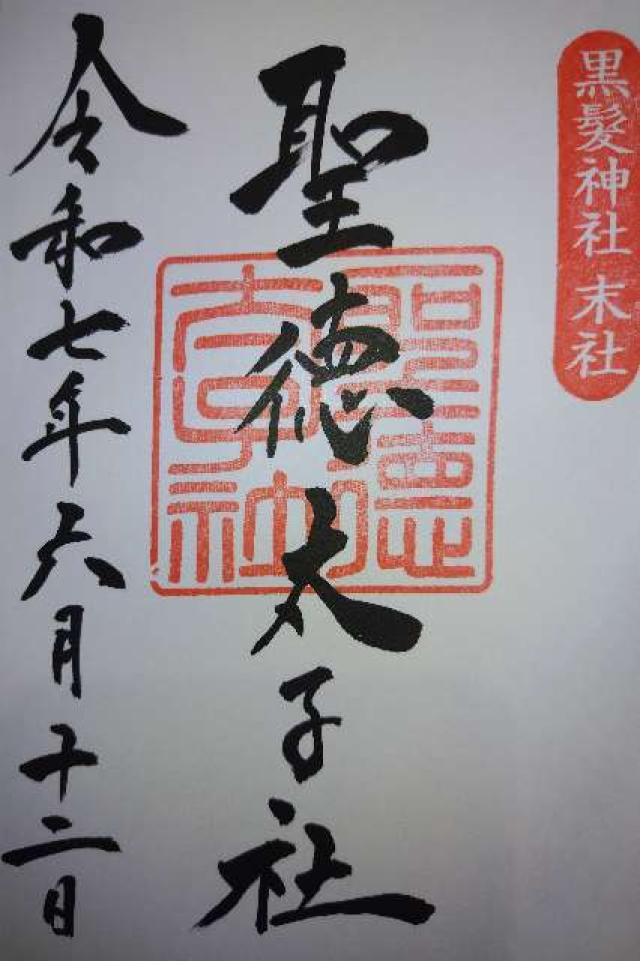 黒髪神社 末社
聖徳太子社
聖徳太子社
令和七年六月十二日